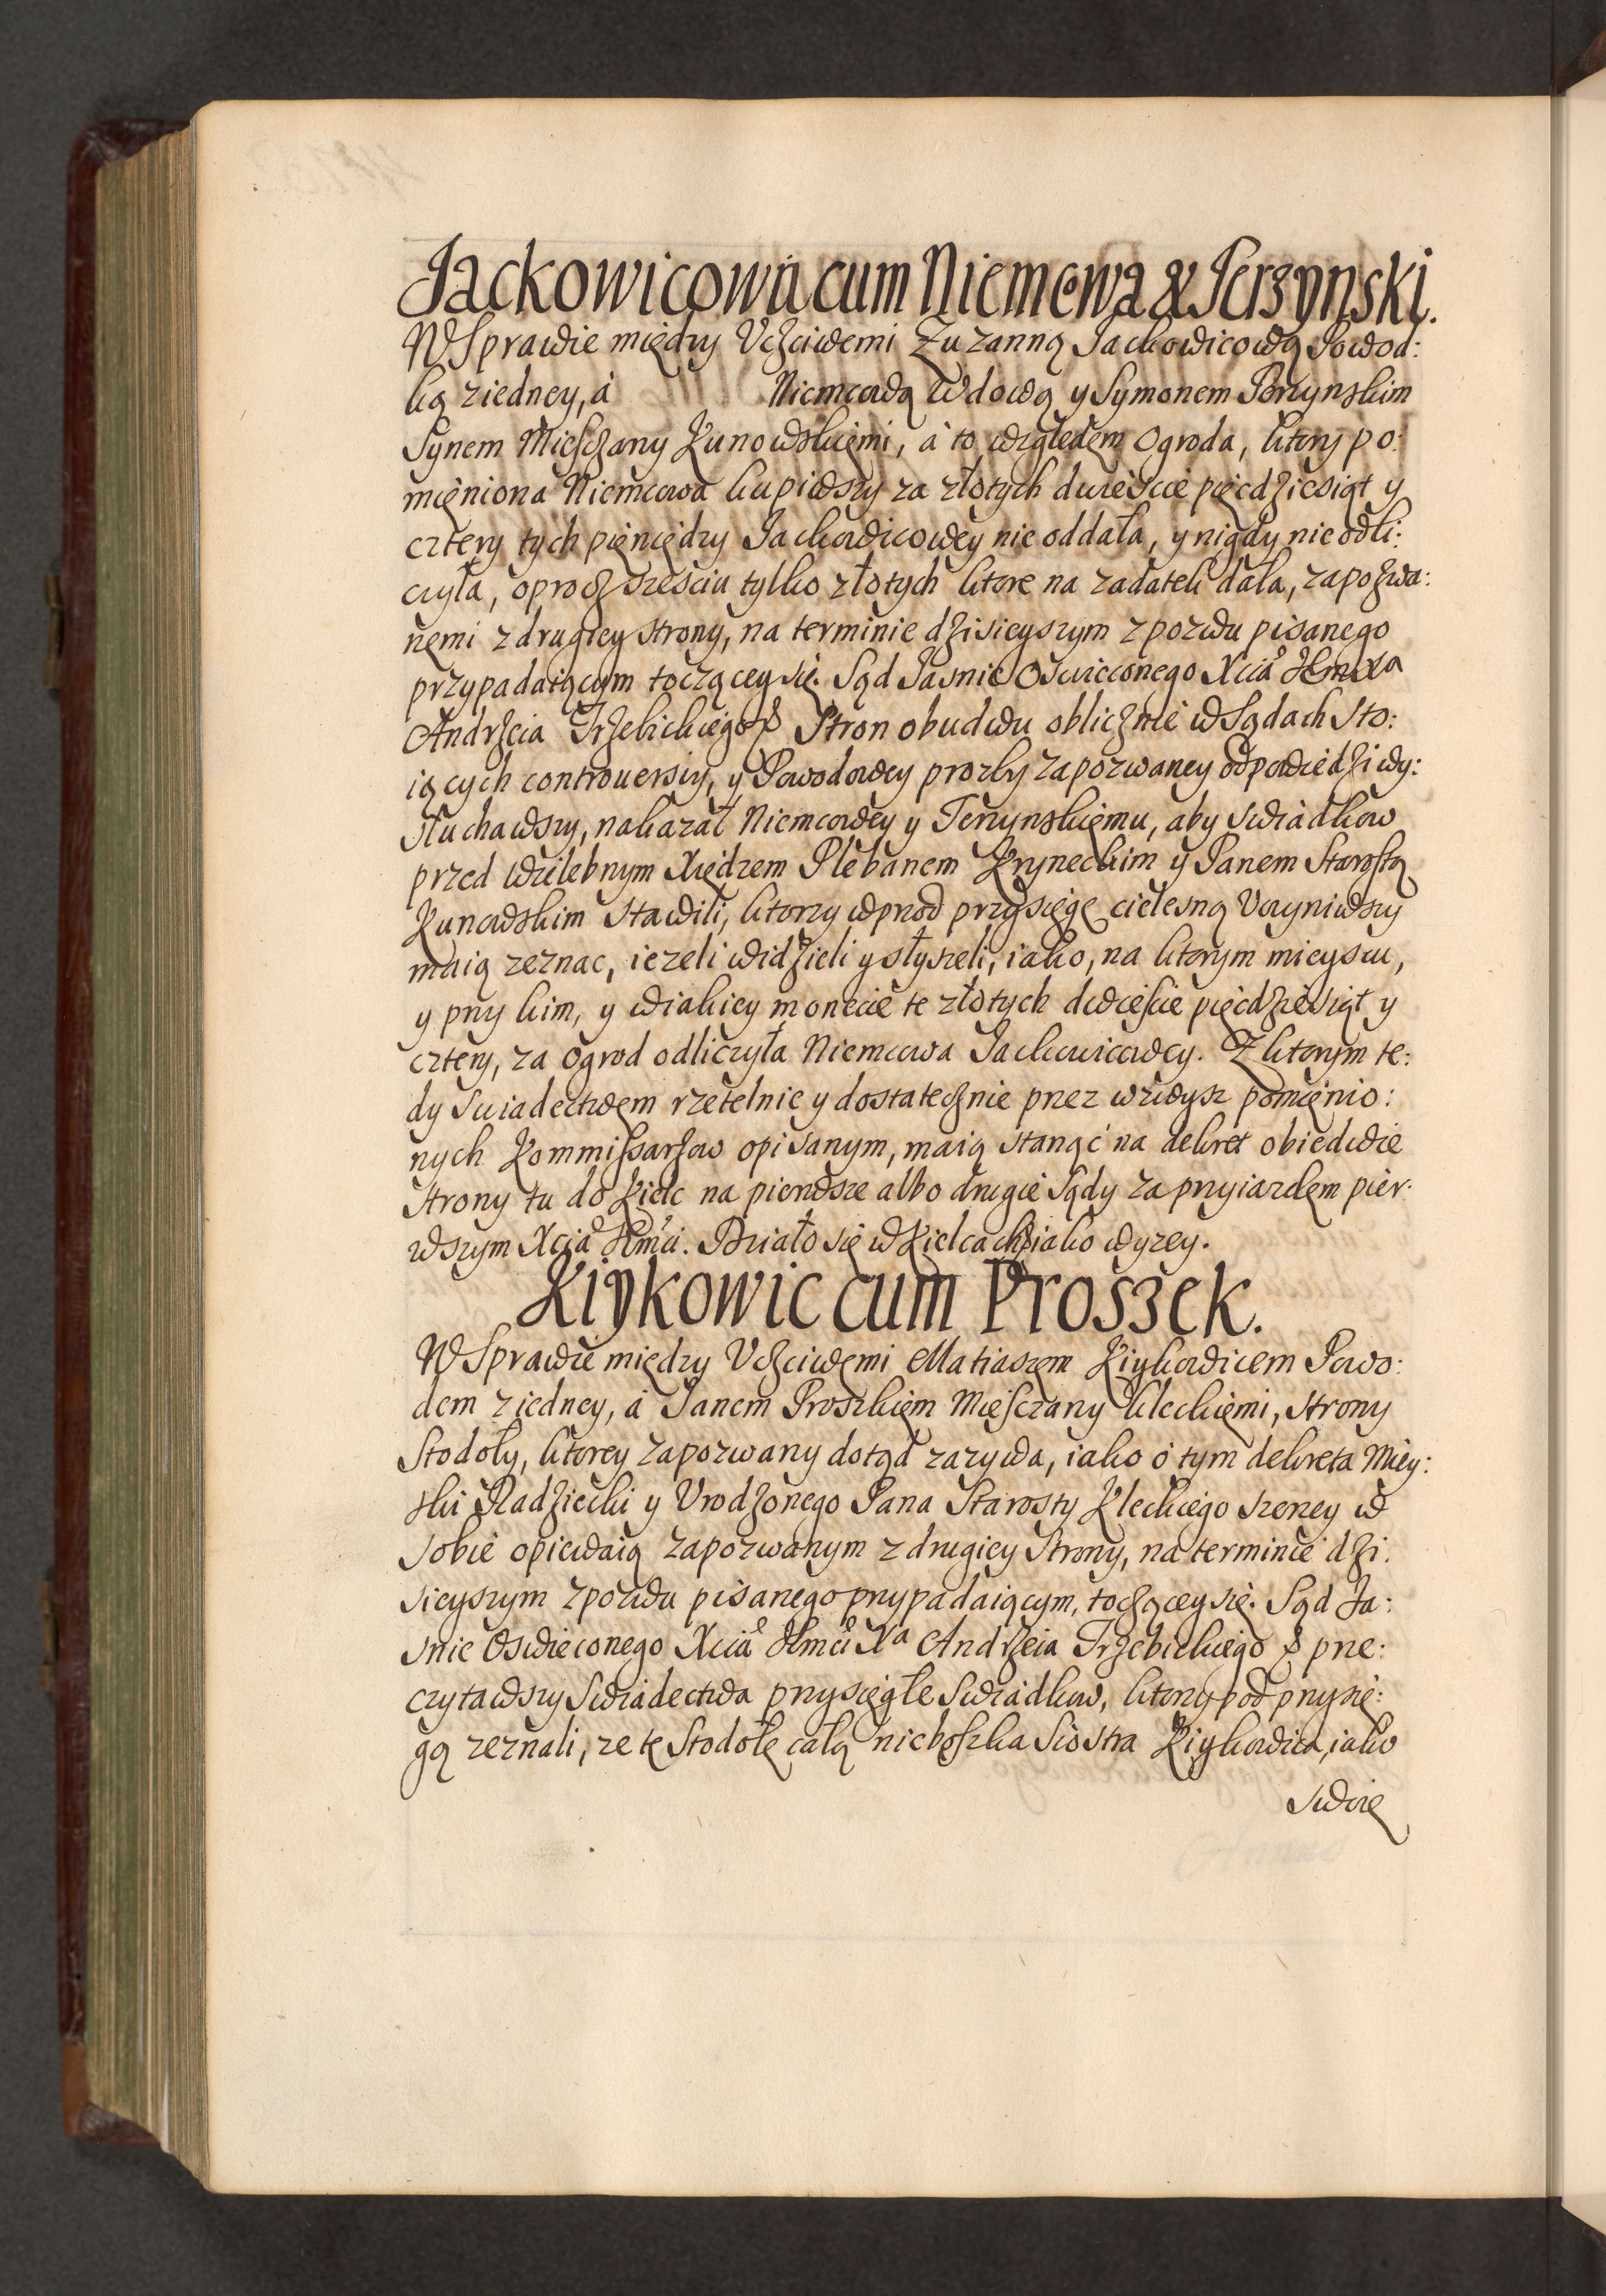 Jackowicowa cum Niemcwa & Terzynski.
W Sprawie między Vczciwemi Zuzanną Jackowicową Powod:
ką ziedney, á Niemcową Wdową y Symonem Terzynskim
Synem Mieszczany Kunowskięmi, á to względem Ogroda, ktory po:
mięniona Niemcowa kupiwszy za złotych dwieście pięcdziesiąt y
cztery tych pięniędzy Jackowicowey nie oddała, y nigdy nie odli:
czyła, oprocz sześciu tylko złotych ktore na zadatek dała, zapozwa:
nęmi z drugiey strony, na terminie dzisieyszym z pozwu pisanego
przypadaiącym toczącey się. Sąd Jasnie Oswieconego Xcia Jmci Xa
Andrzeia Trzebickiego & Stron obudwu oblicznie w Sądach sto:
iących controuersiy, y Powodowey prozby zapozwaney odpowiedzi wy:
słuchawszy, nakazał Niemcowey y Terzynskięmu, aby swiadkow
przed Wielebnym Xiędzem Plebanem Kryneckim y Panem Starostą
Kunowskim stawili, ktorzy wprod przysięgę cielesną Vczyniwszy
maią zeznac, iezeli widzieli y słyszeli, iako, na ktorym mieyscu,
y przy kim, y wiakiey monecie te złotych dwieście pięcdziesiąt y
cztery, za Ogrod odliczyła Niemcowa Jackowicowey. Z ktorym te:
dy swiadectwem rzetelnie y dostatecznie przez wzwysz pomięnio:
nych Kommissarzow opisanym, maią stanąć na dekret obiedwie
strony tu do Kielc na pierwsze albo drugie Sądy za przyiazdem pier:
wszym Xcia Jmci. Działo się w Kielcach iako wyzey.
Kiykowic cum Proszek.
W Sprawie między Vczciwęmi Matiaszem Kiykowicem Powo:
dem ziedney, á Janem Proszkięm Mieszczany Kleckięmi, strony
Stodoły, ktorey zapozwany dotąd zazywa, iako o tym dekreta Miey:
ski Radziecki y Vrodzonego Pana Starosty Kleckiego szerzey w
sobie opiewaią zapozwanym z drugiey strony, na terminie dzi:
sieyszym z pozwu pisanego przypadaiącym, toczącey się. Sąd Ja:
snie Oswieconego Xcia Jmci Xa Andrzeia Trzebickiego & prze:
czytawszy Swiadectwa przysięgłe Swiadkow, ktorzy pod przysię:
gą zeznali, ze tę Stodołę całą nieboszka Siostra Kiykowica, iako
swoię